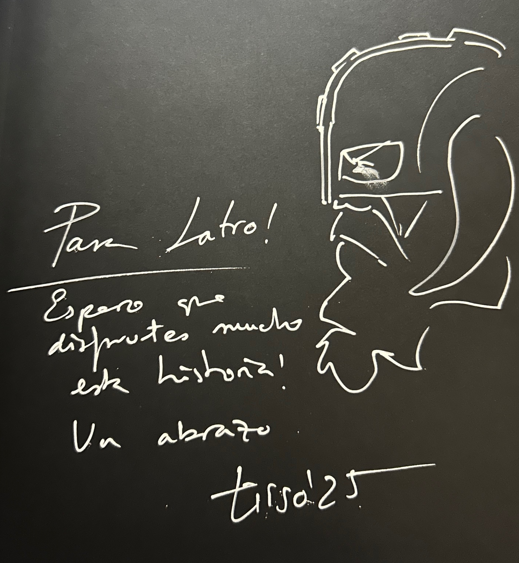 Para Latro!
Espero que
disfrutes mucho
esta historia!
Un abrazo
tirso'25